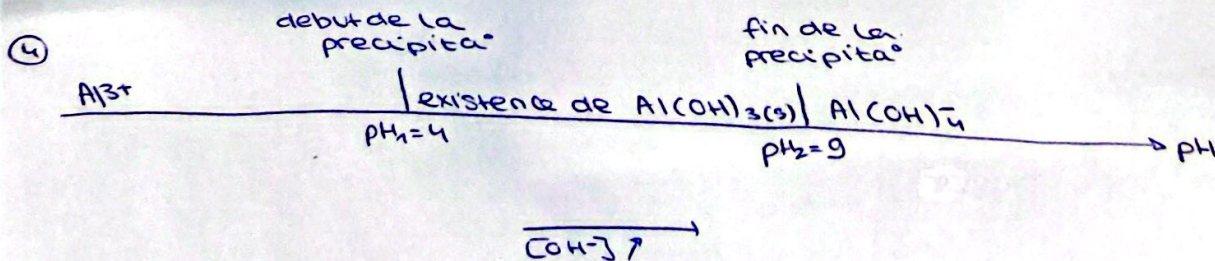 ④
debut de la
precipita°
fin de la
precipita°
Al3+ | existence de Al(OH)3(s) | Al(OH)4-
pH1=4
pH2=9
pH
[OH-] ↗